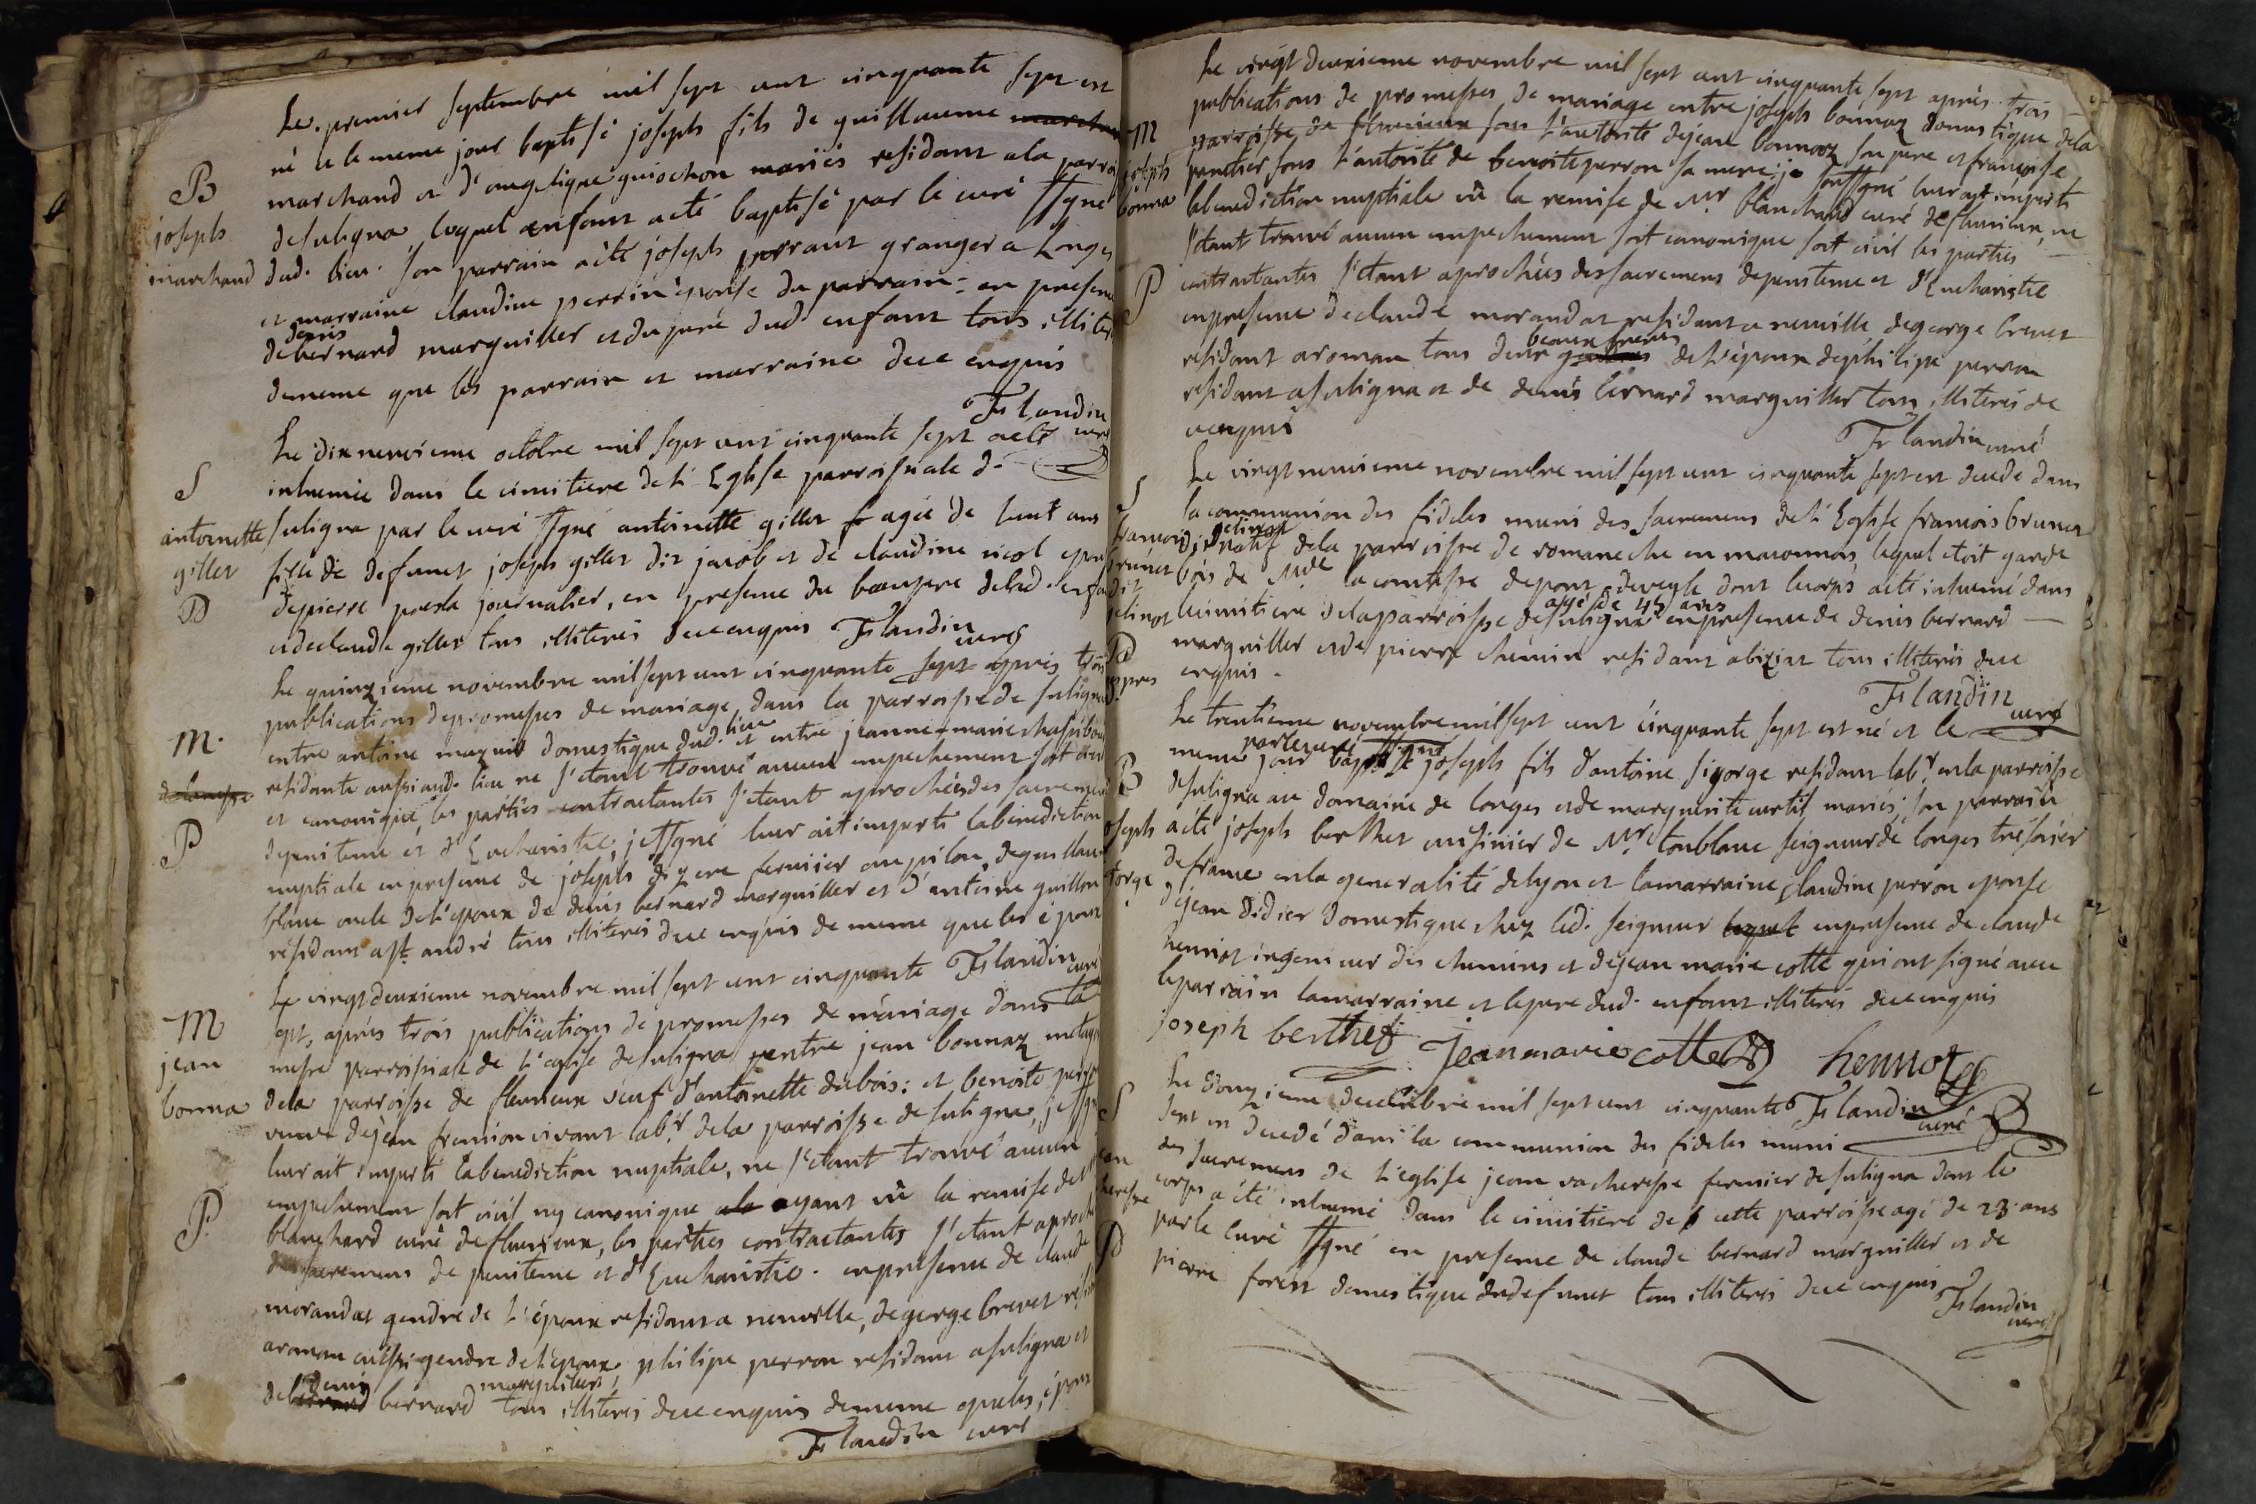 Le premier septembre mil sept cent cinquante sept est
né et le meme jour baptisé joseph fils de guillaume
B
marchand et d'angelique guiochon mariés residant a la parroi
joseph
desuligna, lequel enfant a été baptisé par le curé ssgné
marchand
dud. lieu. son parrain a été joseph perraut granger a Longes
et marraine claudine perrin épouse du parrain: en presence
denis
de bernard marguiller et du peré dud. enfant tous illiterés
dememe que les parrain et marraine de ce enquis
Flandin curé
Le dix neuvieme octobre mil sept cent cinquante sept a eté
inhumée dans le cimitiere de l'Eglise parroissiale de
S
suligna par le curé ssgné antoinette gillet agée de huit ans
antoinette
gillet
fille de defunct joseph gillet dit jacob et de claudine nicol epouse
D
depierre poesle journalier, en presence du beaupere delad. enfant
et declaude gillet tous illiterés de ce enquis Flandin curé
Le quinzieme novembre mil sept cent cinquante sept après trois
publications depromesses de mariage, dans la parroisse de suligna
M.
lieu
entre antoine mazuir domestique dud. et entre jeanne-marie chassibou
residante aussi aud. lieu ne s'etant trouvé aucun empechement soit civil
et canonique, les parties contractantes s'etant aprochées des sacremens
P
depenitence et d'Eucharistie, je ssgné leur ait imparti labenediction
nuptiale en presence de joseph dizere fermier au pilon, deguillaume
blanc oncle de l'epoux de denis bernard marguiller et d'antoine guillon
résidant a st. andré tous illiterés de ce enquis de meme que les époux
Flandin curé
Le vingt deuxieme novembre mil sept cent cinquante
sept, après trois publications de promesses de mariage dans la
M
messe parroissiale de l'eglise desuligna entre jean bonnaz metager
jean
dela parroisse de fleurieux veuf d'antoinette dubois: et benoite perron
bonna
veuve dejean fremion vivant labr. dela parroisse de suligna, je ssgné
leur ait imparti labenediction nuptiale, ne s'etant trouvé aucun
empechement soit civil ny canonique ayant vû la remise de Mr
P.
blanchard curé de fleurieux, les parties contractantes s'etant aprochées
des sacremens de penitence et d'Eucharistie. en presence de claude
morandat gendre de l'époux residant a neuville, degeorge brevet residant
aroman aussi gendre de l'epoux, philipe perron residant asuligna et
denis marguiller,
de bernard tous illiterés de ce enquis dememe que les époux
Flandin curé
Le vingt deuxieme novembre mil sept cent cinquante sept après trois
publications de promesses de mariage entre joseph bonnaz domestique dela
M
parroisse de fleurieux sous l'autorité dejean bonnaz son pere et francoise
joseph
bonna
sous l'autorité de benoite perron sa mere; je soussgné leur ait imparti
labenediction nuptiale vû la remise de Mr blanchard curé de fleurieux, ne
s'etant trouvé aucun empechement soit canonique soit civil les parties
P
contractantes s'etant aprochées des sacremens depenitence et d'Eucharistie
enpresence declaude morandat residant a neuville degeorge brevet
beaux freres
residant aroman tous deux de l'époux dephilipe perron
residant asuligna et de denis bernard marguiller tous illiterés de
ce enquis
Flandin curé
Le vingt neuvieme novembre mil sept cent cinquante sept est decedé dans
S
la communion des fideles muni des sacremens de l'Eglise francois brunet
francois
brunet
dit gelinot
natif dela parroisse de romaneche en maconnois, lequel etoit garde
bois de Mde la comtesse depont deveyle dont lecorps a eté inhumé dans
dit
gelinot
agé de 45 ans
lecimitiere delaparroisse desuligna enpresence de denis bernard
marguiller et de pierre chemin residant abiziat tous illiterés de ce
enquis.
Flandin curé
Le trentieme novembre mil sept cent cinquante sept est né et le
par le curé ssgné
meme jour baptisé joseph fils d'antoine sigorge residant labr. enla parroisse
B
desuligna au domaine de longes et de marguerite curtil mariés; son parrain
joseph
a été joseph berthet cuisinier de Mr. tonblanc seigneur de longes trésorier
sigorge
defrance enla generalité delyon et lamarraine claudine perron epouse
dejean didier domestique chez led. seigneur enpresence de claude
henriot ingenieur des chemins et dejean marie cotte qui ont signé avec
leparrain lamarraine et lepere dud. enfant illiterés de ce enquis
joseph berthet Jean marie cotte henriot
Flandin curé
Le douzieme decembre mil sept cent cinquante
S
sept est decedé dans la communion des fideles muni
des sacremens de l'eglise jean vacheresse fermier de suligna dont le
jean
vacheresse
corps a été inhumé dans le cimitiere de cette parroisse agé de 23 ans
parle curé ssgné en presence de claude bernard marguiller et de
D
pierre forest domestique dudefunct tous illiterés de ce enquis
Flandin curé